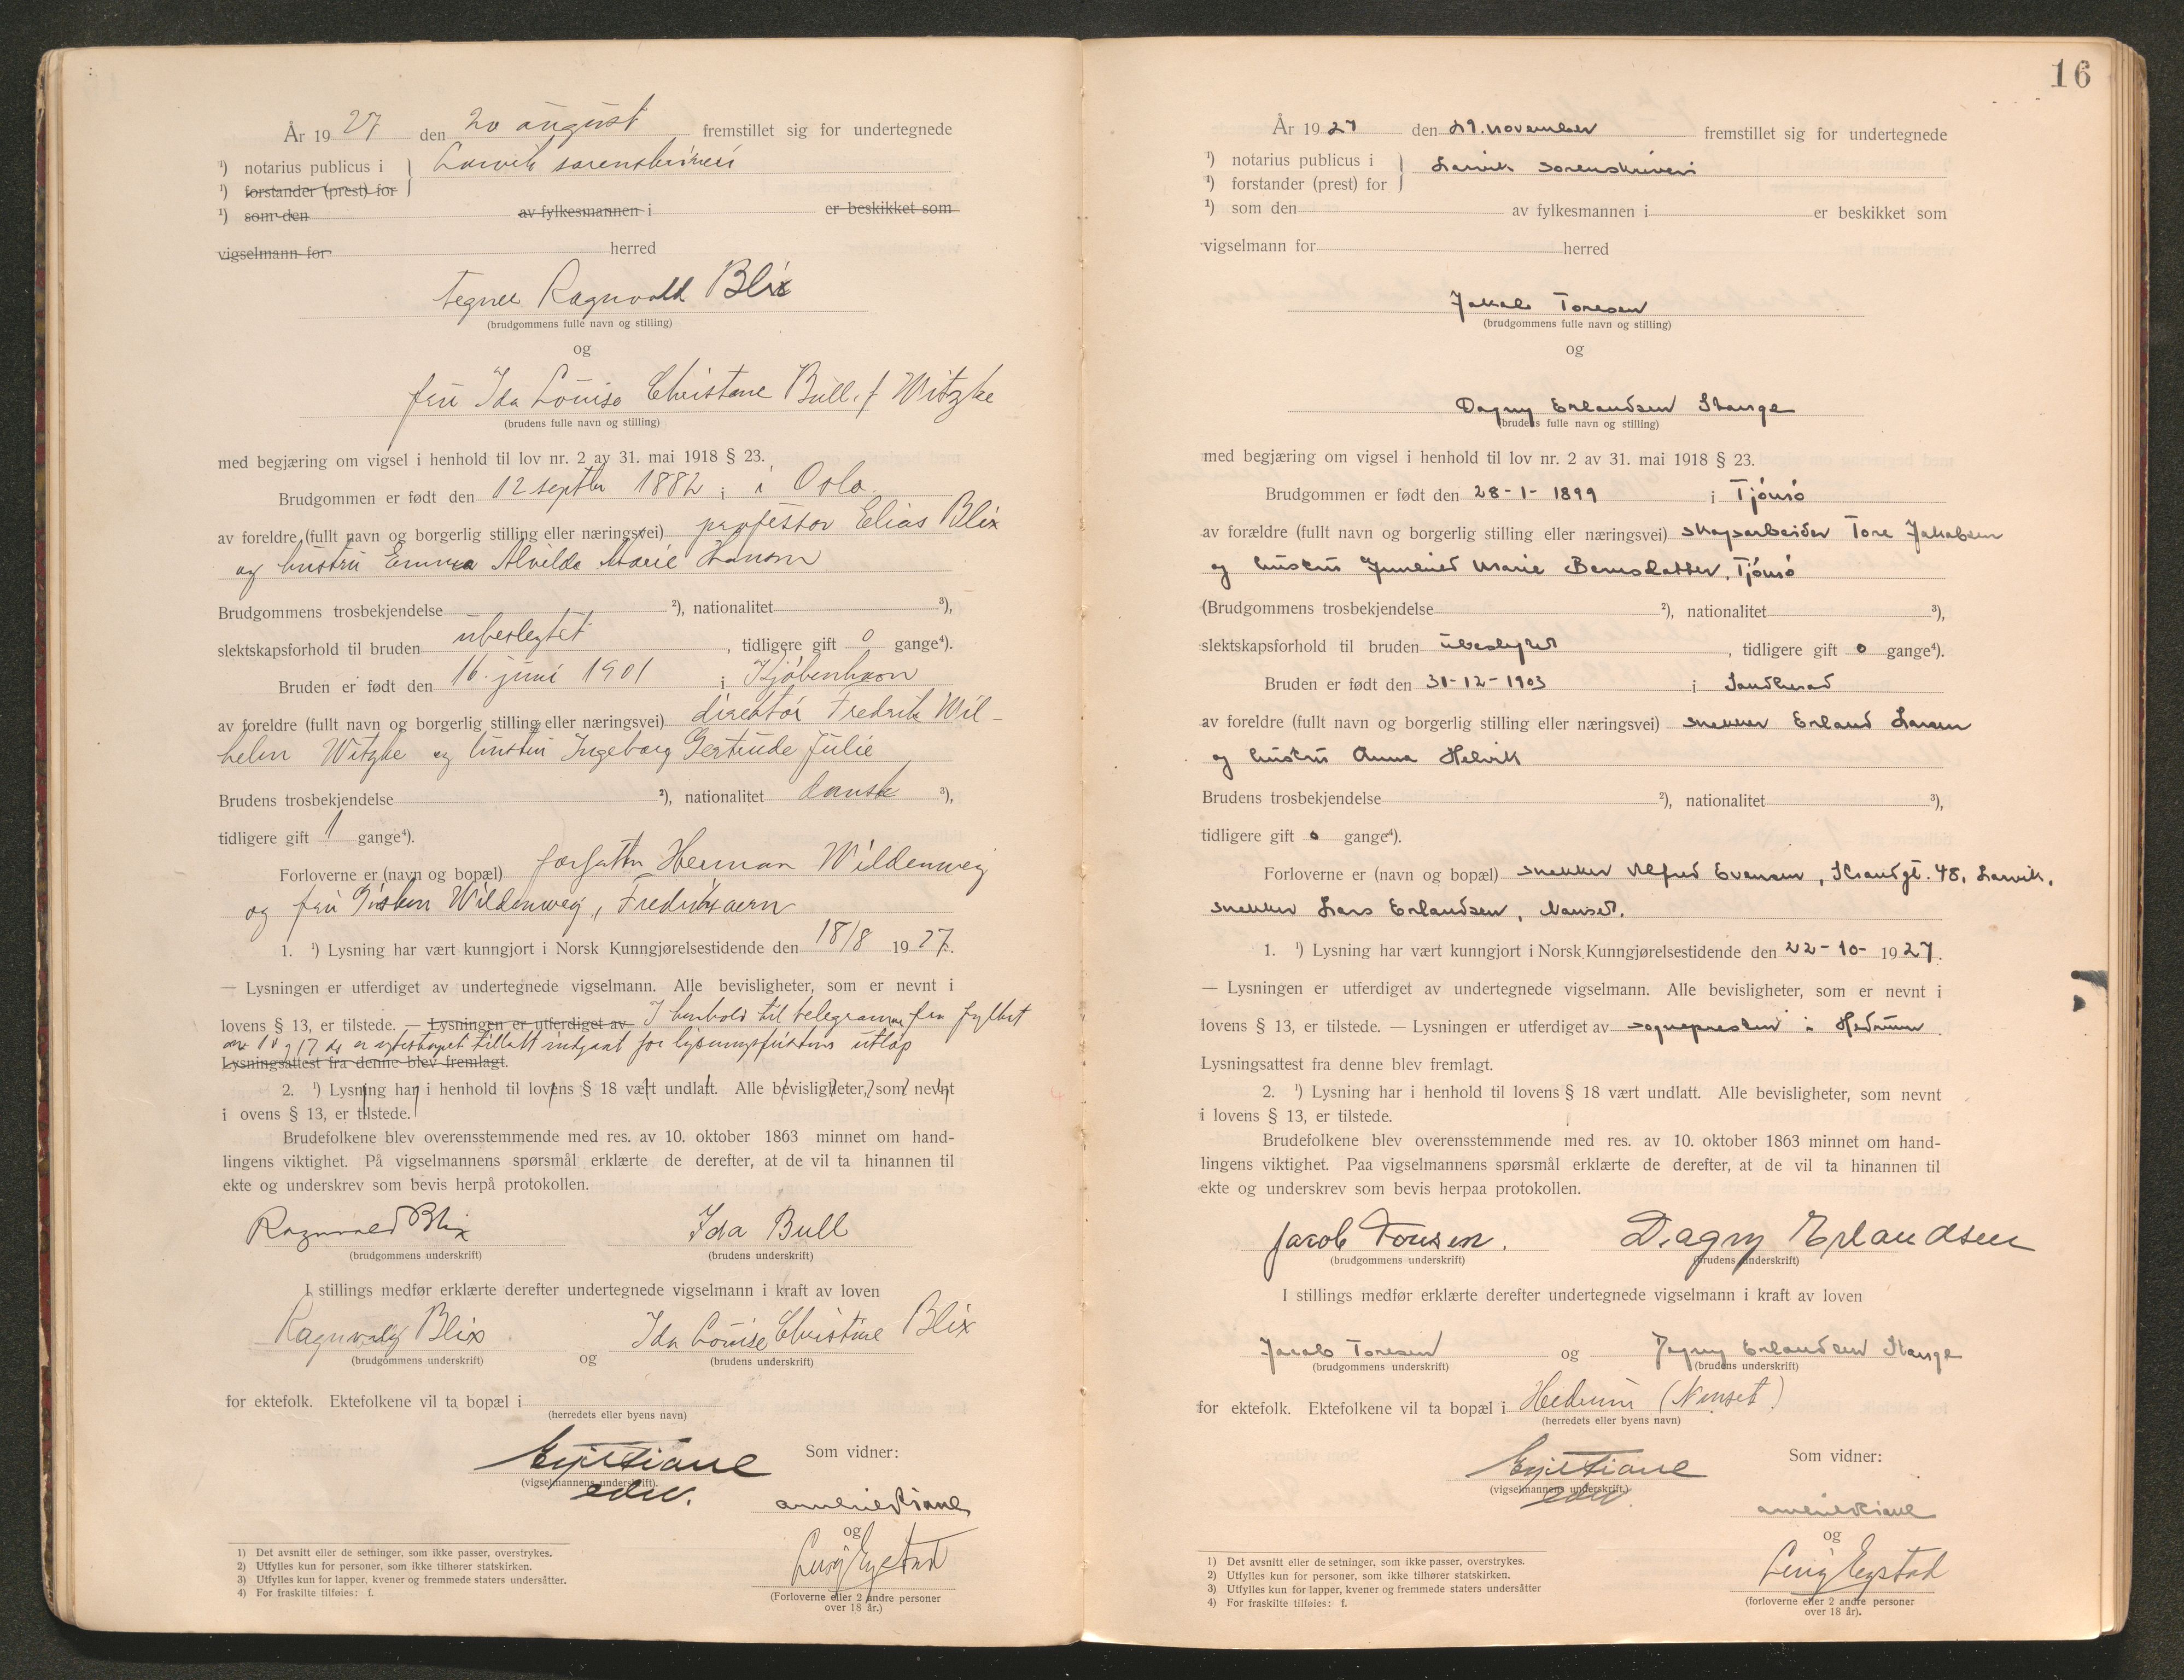 År 19 27 den 20 august fremstillet sig for undertegnede
¹) notarius publicus i Larvik sorenskriveri
¹) forstander (prest) for
¹) som den av fylkesmannen i er beskikket som
vigselmann for herred
tegner Ragnvald Blix
(brudgommens fulle navn og stilling)
og
fru Ida Louise Christine Bull, f Witzke
(brudens fulle navn og stilling)
med begjæring om vigsel i henhold til lov nr. 2 av 31. mai 1918 § 23.
Brudgommen er født den 12 septbr 1882 i Oslo
av foreldre (fullt navn og borgerlig stilling eller næringsvei) professor Elias Blix
og hustru Emma Alvilde Marie Hanson
Brudgommens trosbekjendelse ²), nationalitet ³),
slektskapsforhold til bruden ubeslegtet, tidligere gift 0 gange⁴).
Bruden er født den 16. juni 1901 i Kjøbenhavn
av foreldre (fullt navn og borgerlig stilling eller næringsvei) direktør Fredrik Wil-
helm Witzke og hustru Ingeborg Gertrude Julie
Brudens trosbekjendelse ²), nationalitet dansk ³),
tidligere gift 1 gange⁴).
Forloverne er (navn og bopæl) forfatter Herman Wildenwey
og fru Gisken Wildenwey, Fredriksvern
1. ¹) Lysning har vært kunngjort i Norsk Kunngjørelsestidende den 18/8 19 27.
— Lysningen er utferdiget av undertegnede vigselmann. Alle bevisligheter, som er nevnt i
lovens § 13, er tilstede. — Lysningen er utferdiget av I henhold til telegram fra fylket
av 18 og 17 ds er egteskapet tillatt indgaat før lysningsfristens utløp
Lysningsattest fra denne blev fremlagt.
2. ¹) Lysning har i henhold til lovens § 18 vært undlatt. Alle bevisligheter, som nevnt
i ovens § 13, er tilstede.
Brudefolkene blev overensstemmende med res. av 10. oktober 1863 minnet om hand-
lingens viktighet. På vigselmannens spørsmål erklærte de derefter, at de vil ta hinannen til
ekte og underskrev som bevis herpå protokollen.
Ragnvald Blix Ida Bull
(brudgommens underskrift) (brudens underskrift)
I stillings medfør erklærte derefter undertegnede vigselmann i kraft av loven
Ragnvald Blix og Ida Louise Christine Blix
(brudgommens underskrift) (brudens underskrift)
for ektefolk. Ektefolkene vil ta bopæl i
(herredets eller byens navn)
Som vidner:
(vigselmannens underskrift).
edv.
og
1) Det avsnitt eller de setninger, som ikke passer, overstrykes.
2) Utfylles kun for personer, som ikke tilhører statskirken.
3) Utfylles kun for lapper, kvener og fremmede staters undersåtter.
4) For fraskilte tilføies: f.
(Forloverne eller 2 andre personer
over 18 år.)
16
År 19 27 den 29. november fremstillet sig for undertegnede
¹) notarius publicus i Larvik sorenskriveri
¹) forstander (prest) for
¹) som den av fylkesmannen i er beskikket som
vigselmann for herred
Jakob Toresen
(brudgommens fulle navn og stilling)
og
Dagny Erlandsen Stange
(brudens fulle navn og stilling)
med begjæring om vigsel i henhold til lov nr. 2 av 31. mai 1918 § 23.
Brudgommen er født den 28-1-1899 i Tjømø
av forældre (fullt navn og borgerlig stilling eller næringsvei) skapsarbeider Tore Jakobsen
og hustru Marie Berntsdatter, Tjømø
(Brudgommens trosbekjendelse ²), nationalitet ³),
slektskapsforhold til bruden ubeslegtet, tidligere gift 0 gange⁴).
Bruden er født den 31-12-1903 i Sandherad
av foreldre (fullt navn og borgerlig stilling eller næringsvei) snekker Erland Larsen
og hustru Anna Helvik
Brudens trosbekjendelse ²), nationalitet ³),
tidligere gift 0 gange⁴).
Forloverne er (navn og bopæl) snekker Alfred Evensen, Strandgt. 48, Larvik,
snekker Lars Erlandsen, Nanset.
1. ¹) Lysning har vært kunngjort i Norsk Kunngjørelsestidende den 22-10- 19 27.
— Lysningen er utferdiget av undertegnede vigselmann. Alle bevisligheter, som er nevnt i
lovens § 13, er tilstede. — Lysningen er utferdiget av sognepresten i Hedrum.
Lysningsattest fra denne blev fremlagt.
2. ¹) Lysning har i henhold til lovens § 18 vært undlatt. Alle bevisligheter, som nevnt
i lovens § 13, er tilstede.
Brudefolkene blev overensstemmende med res. av 10. oktober 1863 minnet om hand-
lingens viktighet. Paa vigselmannens spørsmål erklærte de derefter, at de vil ta hinannen til
ekte og underskrev som bevis herpaa protokollen.
Jacob Toresen. Dagny Erlandsen
(brudgommens underskrift) (brudens underskrift)
I stillings medfør erklærte derefter undertegnede vigselmann i kraft av loven
Jacob Toresen og Dagny Erlandsen Stange
(brudgommens underskrift) (brudens underskrift)
for ektefolk. Ektefolkene vil ta bopæl i Hedrum (Nanset)
(herredets eller byens navn)
Som vidner:
(vigselmannens underskrift.)
edv.
og
1) Det avsnitt eller de setninger, som ikke passer, overstrykes.
2) Utfylles kun for personer, som ikke tilhører statskirken.
3) Utfylles kun for lapper, kvener og fremmede staters undersåtter
4) For fraskilte tilføies: f.
(forloverne eller 2 andre personer
over 18 år).